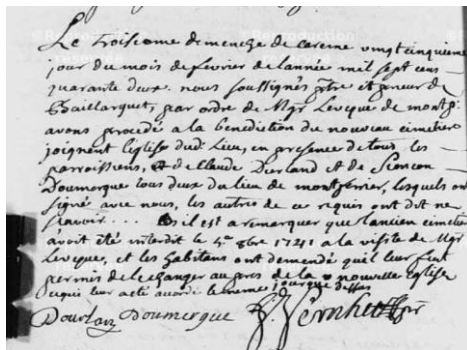 Le troisieme dimenche de careme vingt cinquieme
jour de mois de fevrier de lannée mil sept cens
quarante deux. nous soussignés ptre et prieur de
Baillarguet, par ordre de Mgr Leveque de montp.
avons procedé a la benediction du nouveau cimetiere
joignent leglise dud. Lieu, en presence de tous les
parroissiens, et de Claude Durland et de
Doumergue tous deux du lieu de montferrier, lesquels ont
signé avec nous, les autres de ce requis ont dit ne
scavoir.... il est a remarquer que lancien cimetiere
avoit été interdit le 5e 9bre 1741 a la visite de Mgr
Leveque, et les habitans ont demendé quil leur fut
permis de le changer aupres de la nouvelle Eglise
ce qui leur acté accordé le meme jour que dessus
Dourlan Doumergue